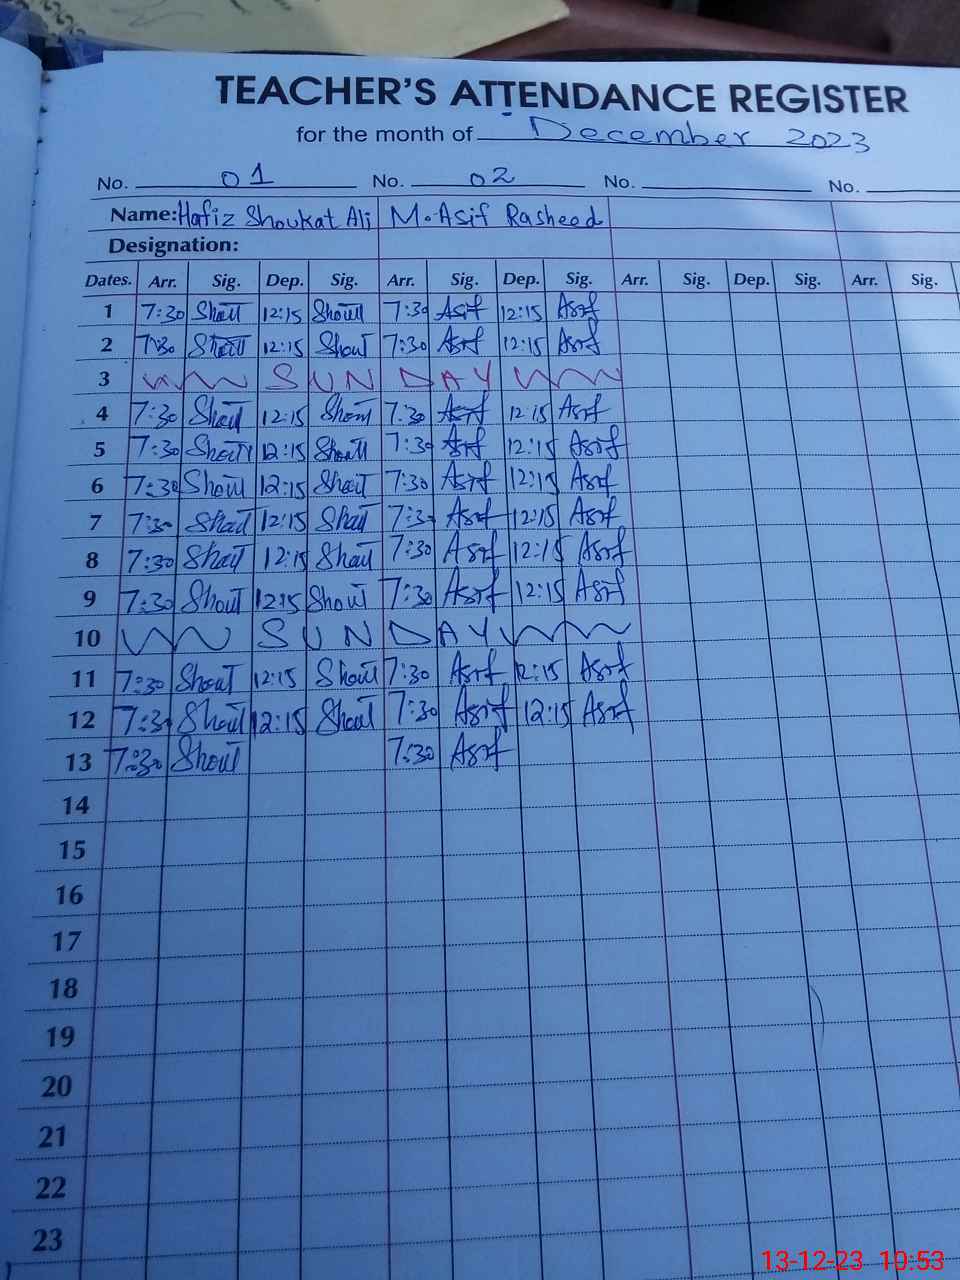 TEACHER'S ATTENDANCE REGISTER
for the month of December 2023
No. 01 No. 02 No. No.
Name: Hafiz Shoukat Ali M. Asif Rasheed
Designation:
Dates. Arr. Sig. Dep. Sig. Arr. Sig. Dep. Sig. Arr. Sig. Dep. Sig. Arr. Sig.
1 7:30 Shout 12:15 Shout 7:30 Asif 12:15 Asif
2 7:30 Shout 12:15 Shout 7:30 Asif 12:15 Asif
3 SUNDAY
4 7:30 Shout 12:15 Shout 7:30 Asif 12:15 Asif
5 7:30 Shout 12:15 Shout 7:30 Asif 12:15 Asif
6 7:30 Shout 12:15 Shout 7:30 Asif 12:15 Asif
7 7:30 Shout 12:15 Shout 7:30 Asif 12:15 Asif
8 7:30 Shout 12:15 Shout 7:30 Asif 12:15 Asif
9 7:30 Shout 12:15 Shout 7:30 Asif 12:15 Asif
10 SUNDAY
11 7:30 Shout 12:15 Shout 7:30 Asif 12:15 Asif
12 7:30 Shout 12:15 Shout 7:30 Asif 12:15 Asif
13 7:30 Shout 7:30 Asif
14
15
16
17
18
19
20
21
22
23
13-12-23 10:53